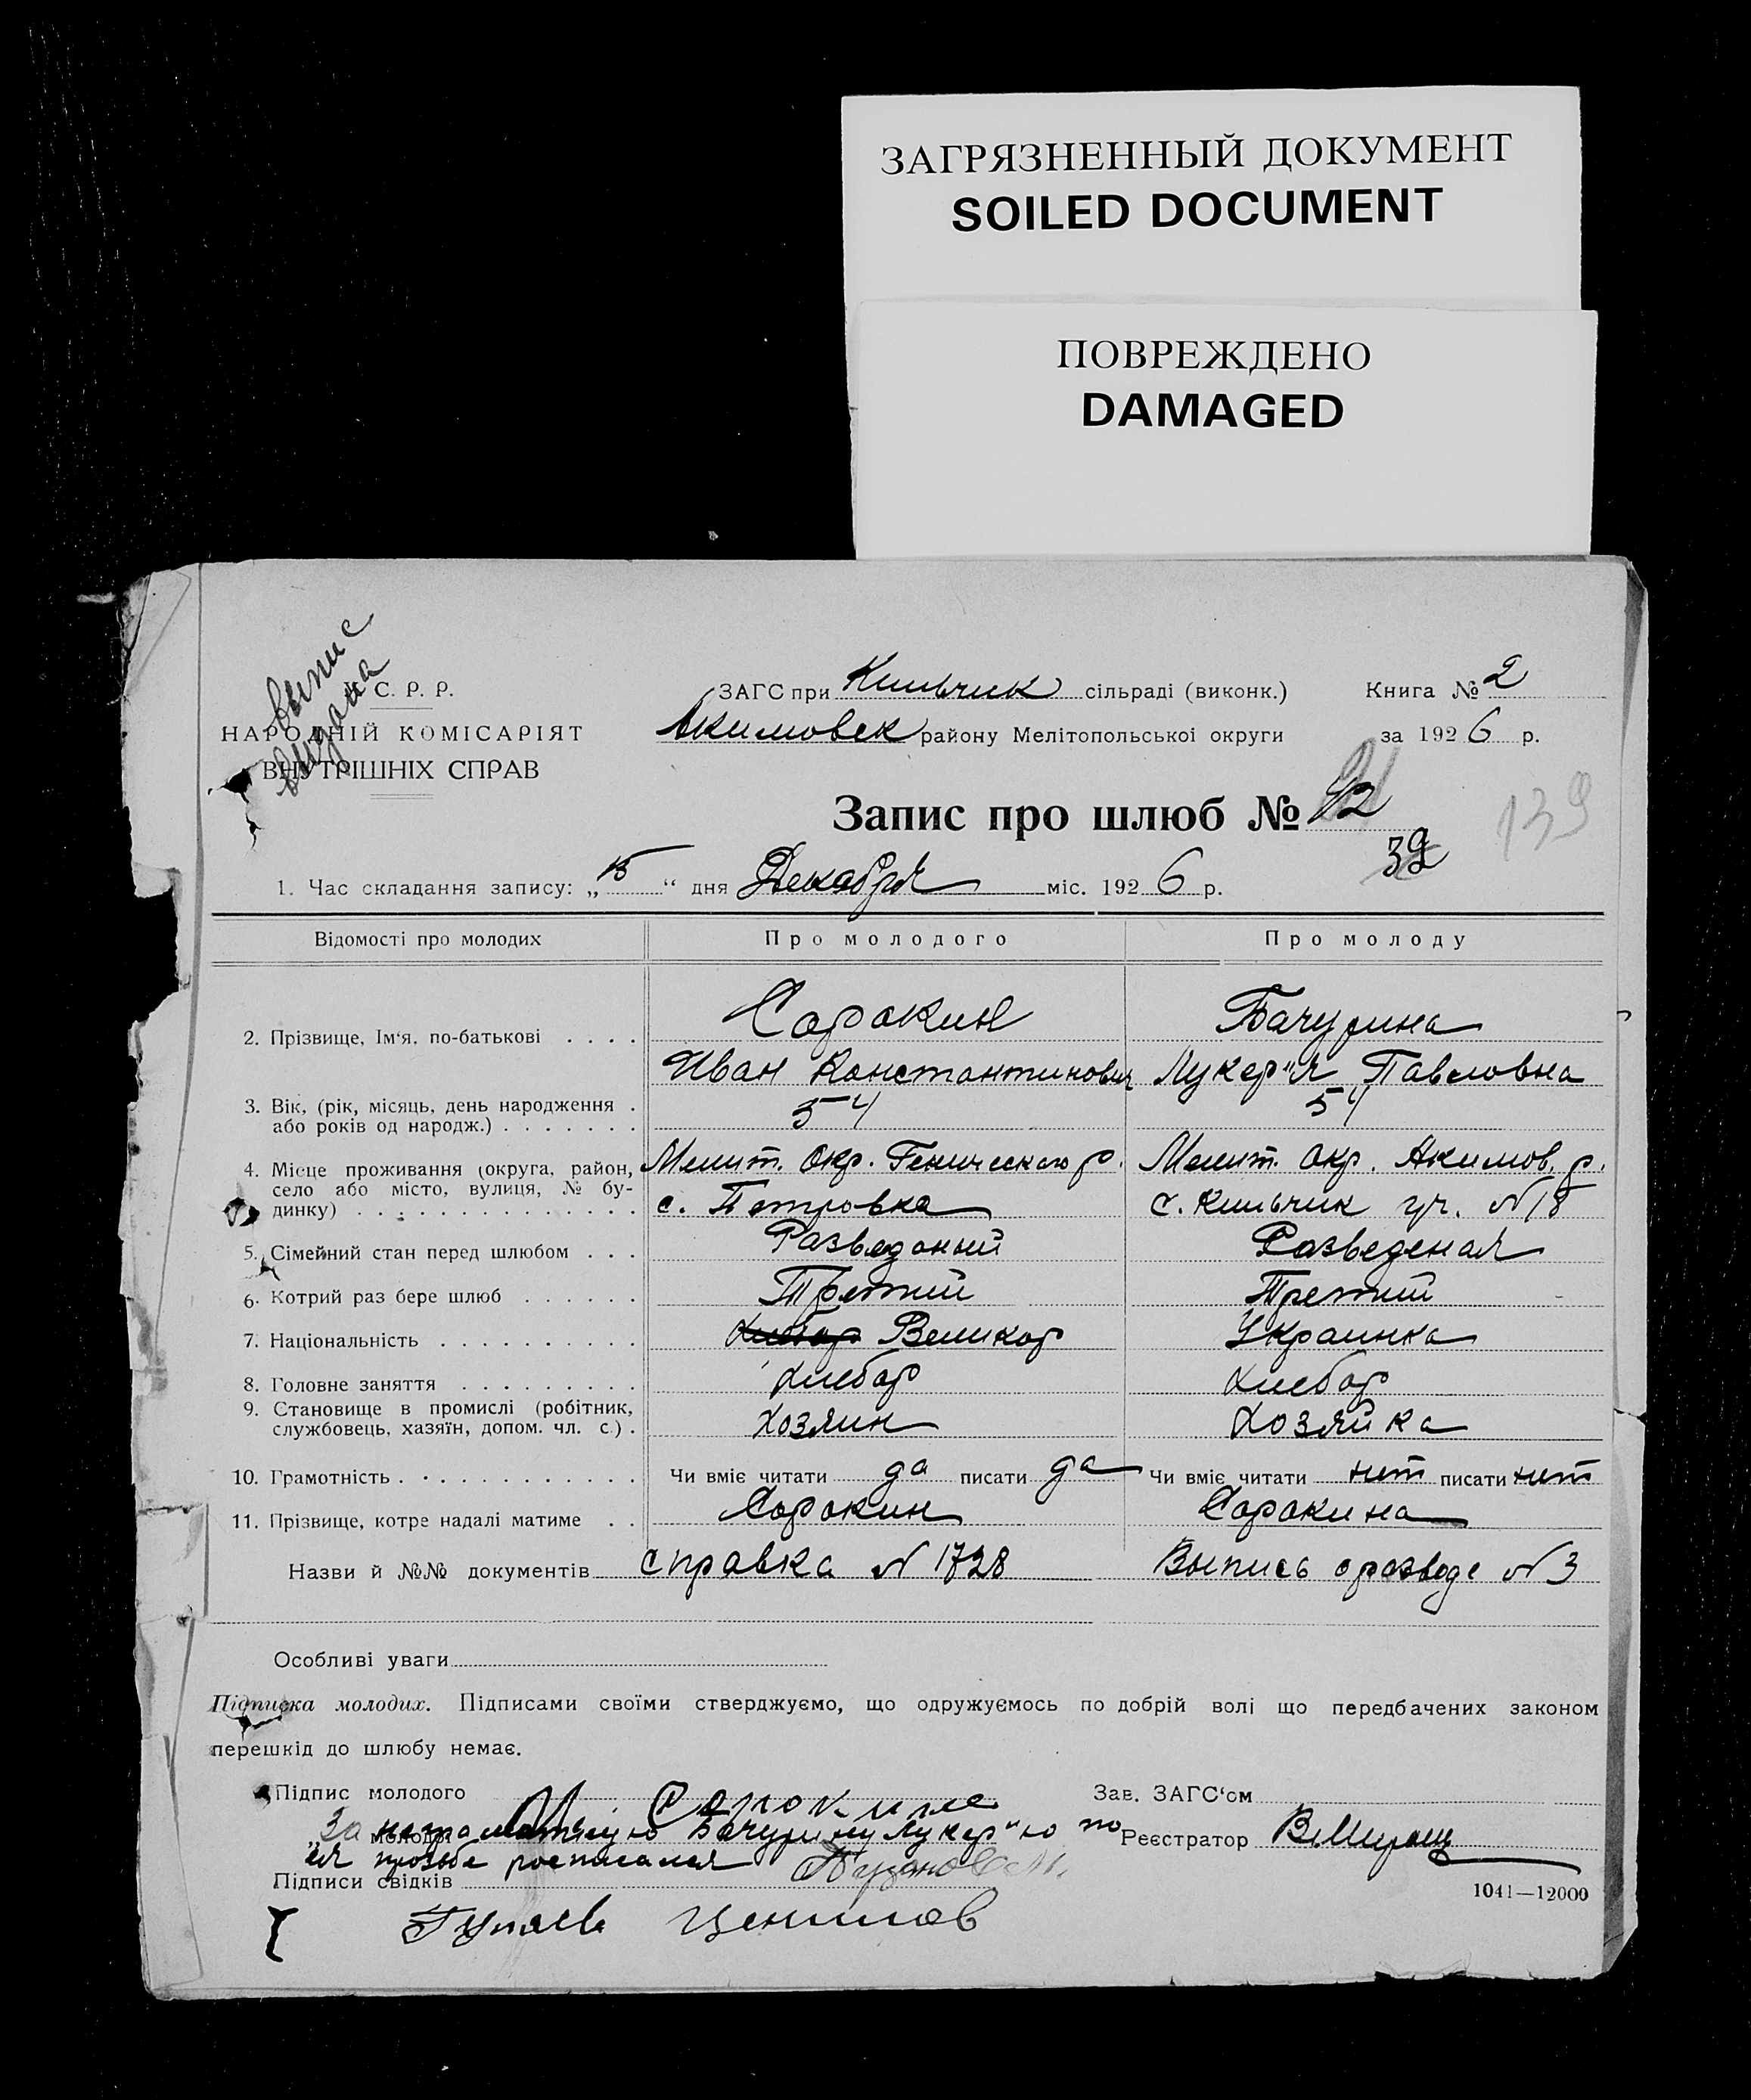 ЗАГРЯЗНЕННЫЙ ДОКУМЕНТ
SOILED DOCUMENT
ПОВРЕЖДЕНО
DAMAGED
выпис
выдана
С. Р. Р.
НАРОДНІЙ КОМІСАРІЯТ
ВНУТРІШНІХ СПРАВ
ЗАГС при Кильчик сільраді (виконк.)
Акимовск району Мелітопольської округи
Книга № 2
за 1926 р.
Запис про шлюб № 42
39
139
1. Час складання запису: „15“ дня Декабря міс. 1926 р.
Відомості про молодих Про молодого Про молоду
2. Прізвище, Ім‘я, по-батькові . . . . Сорокин Бачурина
Иван Константинович Лукер"я Павловна
3. Вік, (рік, місяць, день народження . 54 54
або років од народж.) . . . . . . .
4. Місце проживання (округа, район, Мелит. Окр. Генического р. Мелит. Окр. Акимов. р.
село або місто, вулиця, № бу-
динку) . . . . . . . . . . . . . . с. Петровка с. Кильчик уч. N 18
5. Сімейний стан перед шлюбом . . . Разведоный Разведеная
6. Котрий раз бере шлюб . . . . . . Третий Третий
7. Національність . . . . . . . . . . Хлебор Великор Украинка
8. Головне заняття . . . . . . . . . Хлебор Хлебор
9. Становище в промислі (робітник,
службовець, хазяїн, допом. чл. с.) . Хозяин Хозяйка
10. Грамотність . . . . . . . . . . . . Чи вміє читати да писати да Чи вміє читати нит писати нит
11. Прізвище, котре надалі матиме . . Сорокин Сорокина
Назви й №№ документів справка N 1728 Выпись о разводе N 3
Особливі уваги
Підписка молодих. Підписами своїми стверджуємо, що одружуємось по добрій волі що передбачених законом
перешкід до шлюбу немає.
Підпис молодого Сорокин
Зав. ЗАГС‘ом
„ молодої За неграматную Бачурину Лукер"ю по
Реєстратор
ея прозьбе росписался
Підписи свідків
1041—12000